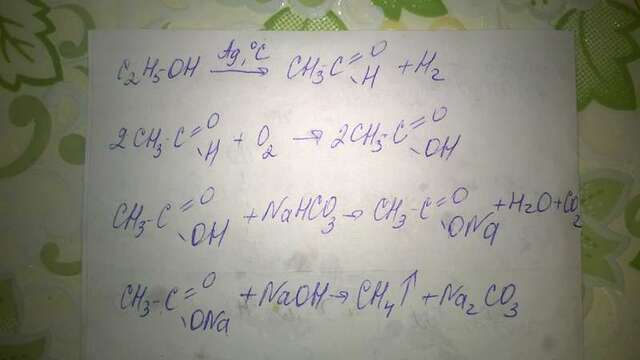 C₂H₅-OH Ag,°C → CH₃-C=O\H + H₂
2CH₃-C=O\H + O₂ → 2CH₃-C=O\OH
CH₃-C=O\OH + NaHCO₃ → CH₃-C=O\ONa + H₂O + CO₂
CH₃-C=O\ONa + NaOH → CH₄↑ + Na₂CO₃